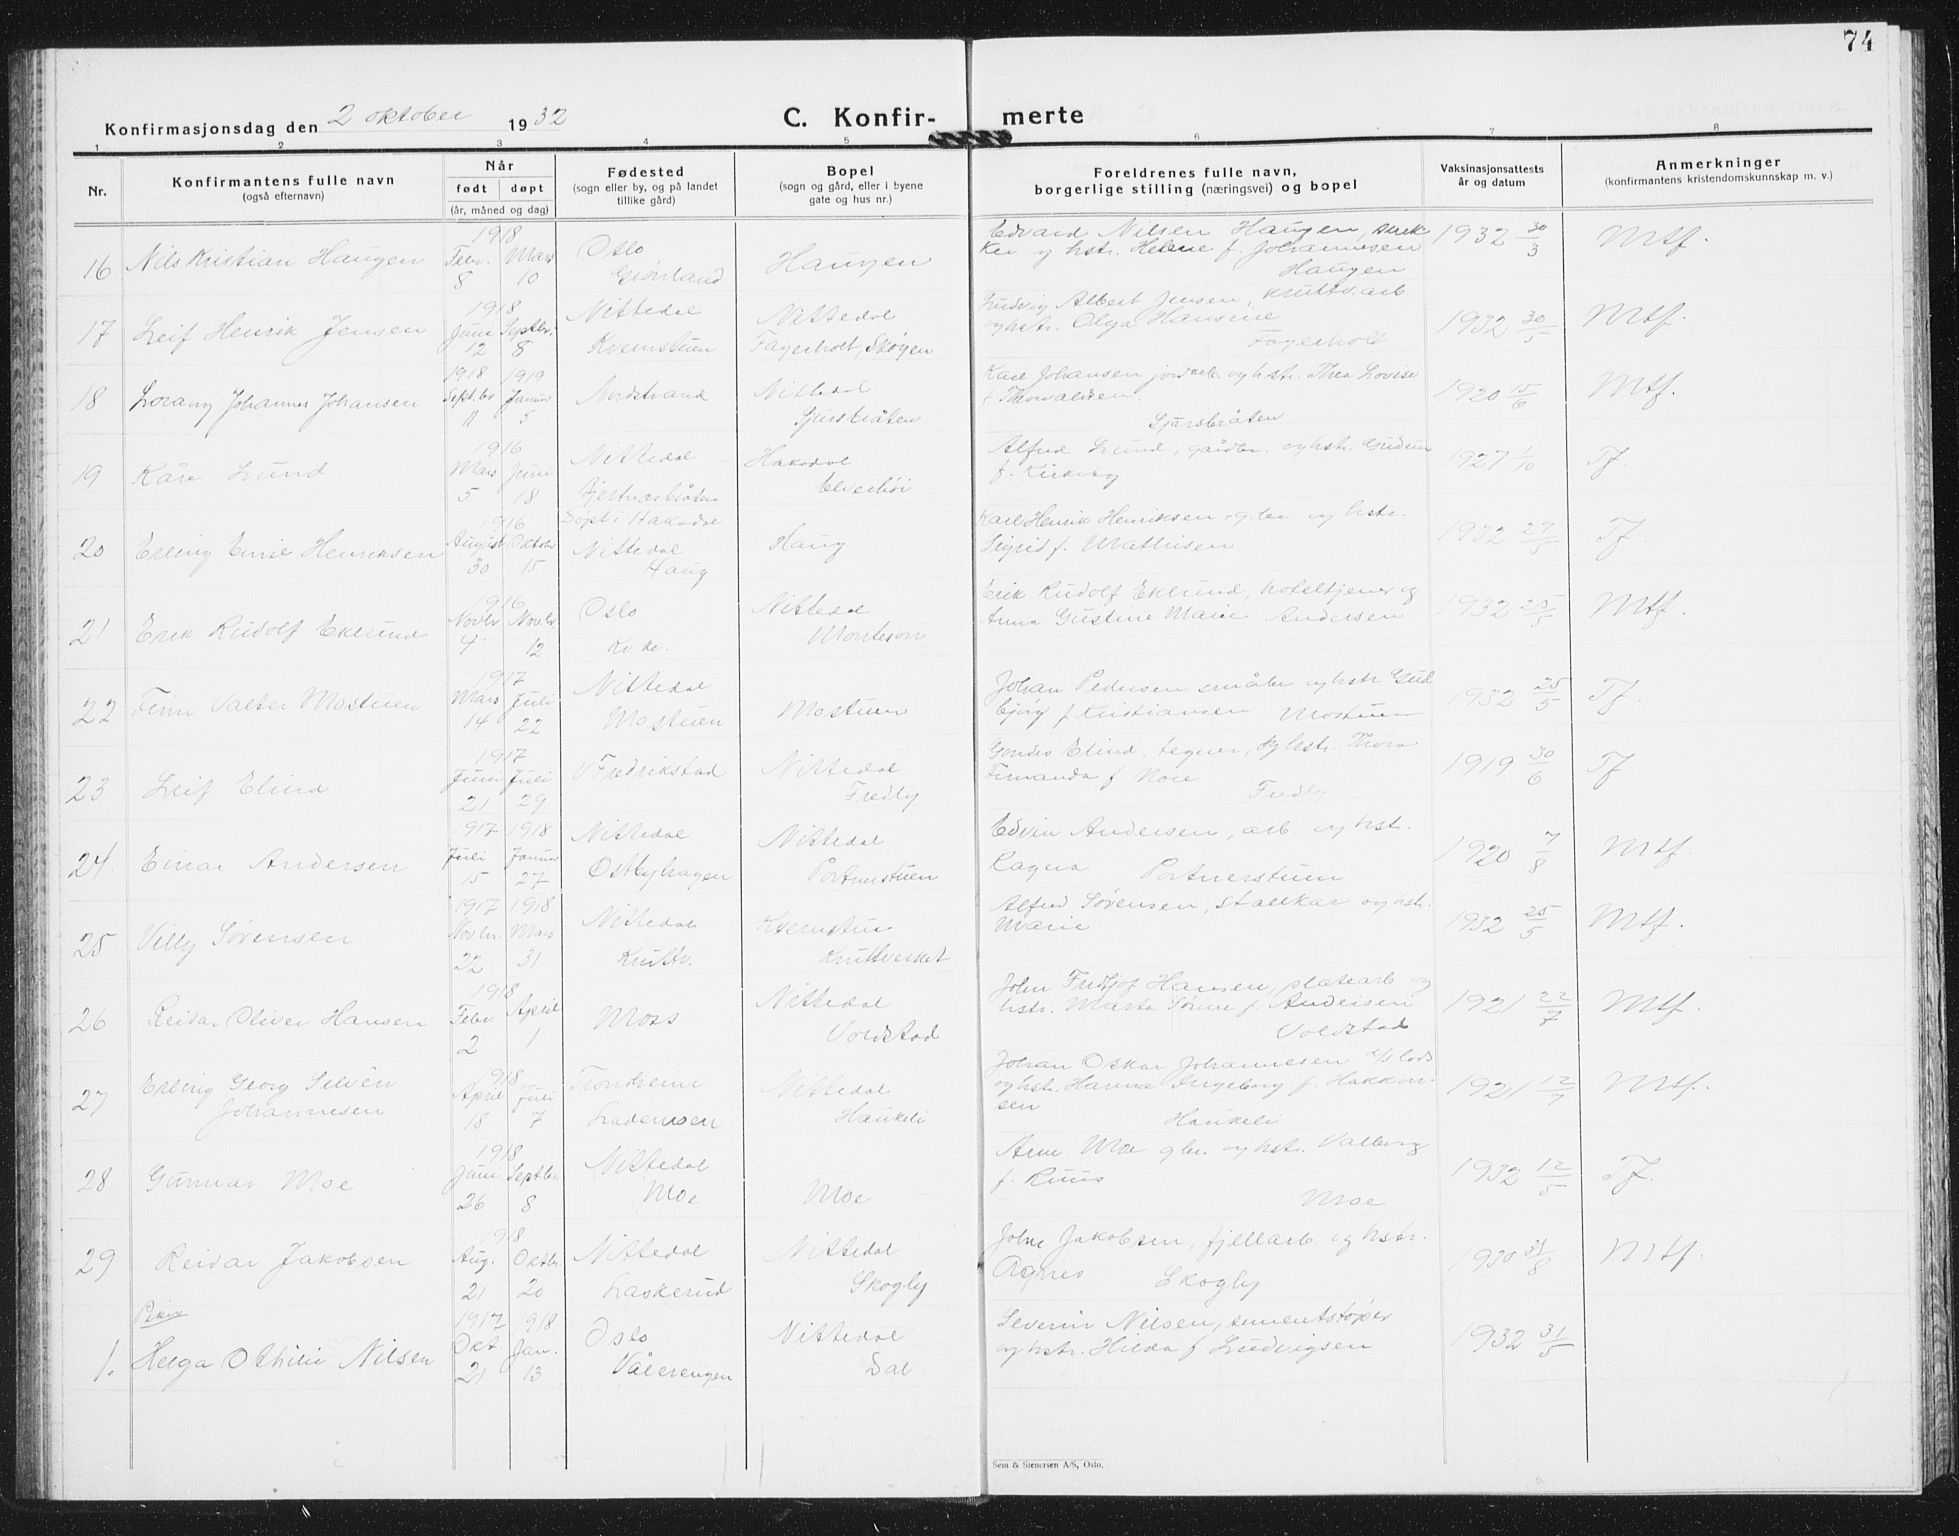 74
Konfirmasjonsdag den 2 oktober 1932
C. Konfir- merte
1 2 3 4 5 6 7 8
Nr.
Konfirmantens fulle navn
(også efternavn)
Når
født døpt
(år, måned og dag)
Fødested
(sogn eller by, og på landet
tillike gård)
Bopel
(sogn og gård, eller i byene
gate og hus nr.)
Foreldrenes fulle navn,
borgerlige stilling (næringsvei) og bopel
Vaksinasjonsattests
år og datum
Anmerkninger
(konfirmantens kristendomskunnskap m. v.)
16 Nils Kristian Haugen
1918
Febr. Mars
8 10
Oslo
Grønland
Haugen
Edvard Nilsen Haugen, snek
ker og hstr. Helene f. Johannesen
Haugen
1932 30/3
Mtf.
17 Leif Henrik Jensen
1918
Juni Septbr.
12 8
Nittedal
Kvernstuen
Nittedal
Fagerholt, Skøyen
Ludvig Albert Jensen, kruttv.arb.
og hstr. Olga Hansine
Fagerholt
1932 30/5
Mtf.
18 Johannes Johansen
1918 1919
Septbr Januar
11 5
Nordstrand
Nittedal
Karl Johansen jordarb. og hstr. Thea Lovise
f. Thorvaldsen.
1920 15/6
Mtf.
19 Kåre Lund
1916
Mars Juni
5 18
Nittedal
Hakadal
Elverhøi
Alfred Lund, gårdbr. og hstr. Gudrun
f. Kirkeby
1927 1/10
Tf.
20 Erling Emil Henriksen
1916
August Oktober
30 15
Døpt i Hakadal
Nittedal
Haug
Haug
Karl Henrik Henriksen, g.br. og hstr.
Sigrid f. Mathisen
1932 27/5
Tf.
21 Erik Rudolf Eklund
1916
Novbr Novbr
4 12
Oslo
Kv.kl.
Nittedal
Erik Rudolf Eklund, hoteltjener og
Anna Gustine Marie Andersen
1932 25/5
Mtf.
22 Finn Valter Mostuen
1917
Mars Juli
14 22
Nittedal
Mostuen
Mostuen
Johan Pedersen småbr og hstr Gud
bjørg f. Kristiansen Mostuen
1932 25/5
Tf.
23 Leif Elind
1917
Juni Juli
21 29
Fredrikstad
Nittedal
Fredly
Elind, tegner, og hstr. Thora
Fernanda f. Moe
Fredly
1919 30/6
Tf.
24. Einar Andersen
1917 1918
Juli Januar
15 27
Nittedal
Østbyhagen
Nittedal
Portnerstuen
Edvin Andersen, arb. og hstr.
Ragna Portnerstuen
1920 7/8
Mtf.
25 Villy Sørensen
1917 1918
Novbr. Mars
22 31
Nittedal
Kruttv.
Kvernstu
Kruttverket
Alfred Sørensen, stallkar og hstr.
Marie
1932 25/5
Mtf.
26 Reidar Oliver Hansen
1918
Febr. April
2 1
Moss
Nittedal
Voldstad
John Fridtjof Hansen, platearb. og
hstr. Marta Sørine f. Andersen
Voldstad
1921 22/7
Mtf.
27 Erling Georg Silvén
Johannesen
1918
April Juli
18 7
Trondheim
Lademoen
Nittedal
Haukeli
Johan Oskar Johannesen
og hstr. Hanna Ingeborg f. Hakkon-
sen
Haukeli
1921 12/7
Mtf.
28 Gunnar Moe
1918
Juni Septbr.
26 8
Nittedal
Moe
Moe
Arne Moe gbr. og hstr. Valborg
f. Ruus
Moe
1932 12/5
Tf.
29 Reidar Jakobsen
1918
Aug. Oktbr
21 20
Nittedal
Laskerud
Nittedal
Skogly
John Jakobsen, fjellarb. og hstr.
Agnes Skogly
1930 31/8
Mtf.
Piker
1. Helga Othilie Nilsen
1917 1918
Okt. Jan.
21 13
Oslo
Vålerengen
Nittedal
Dal
Severin Nilsen, sementstøper
og hstr. Hilda f. Ludvigsen
1932 31/5
Sem & Stenersen A/S, Oslo.